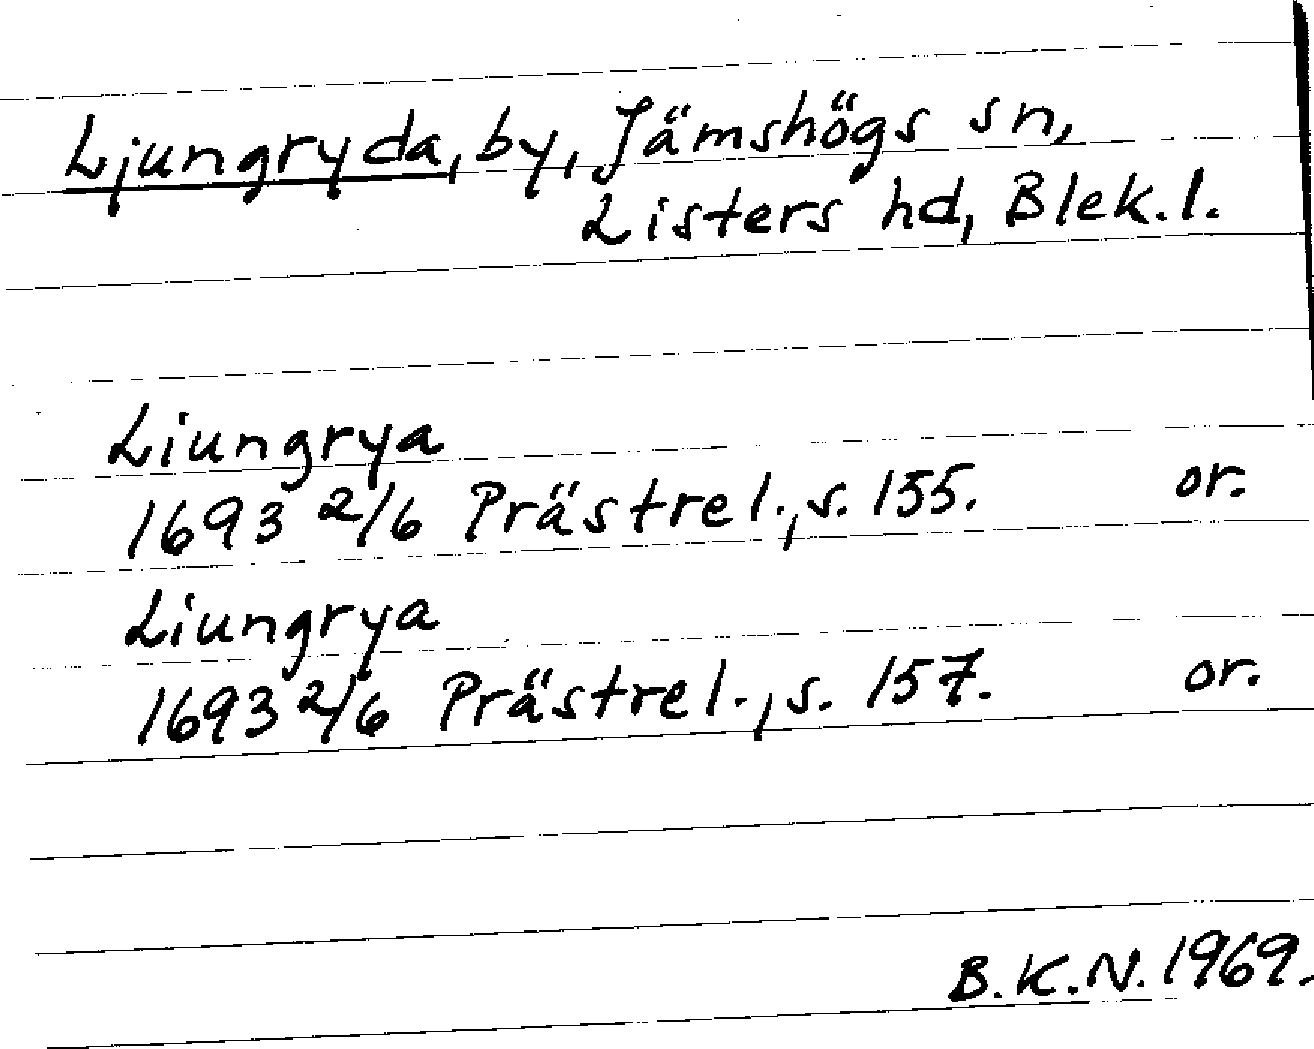 Ljungryda, by, Jämshögs sn,
Listers hd, Blek.l.
Liungrya
1693 2/6 Prästrel., s. 155. or.
Liungrya
1693 2/6 Prästrel., s. 157. or.
B.K.N. 1969.